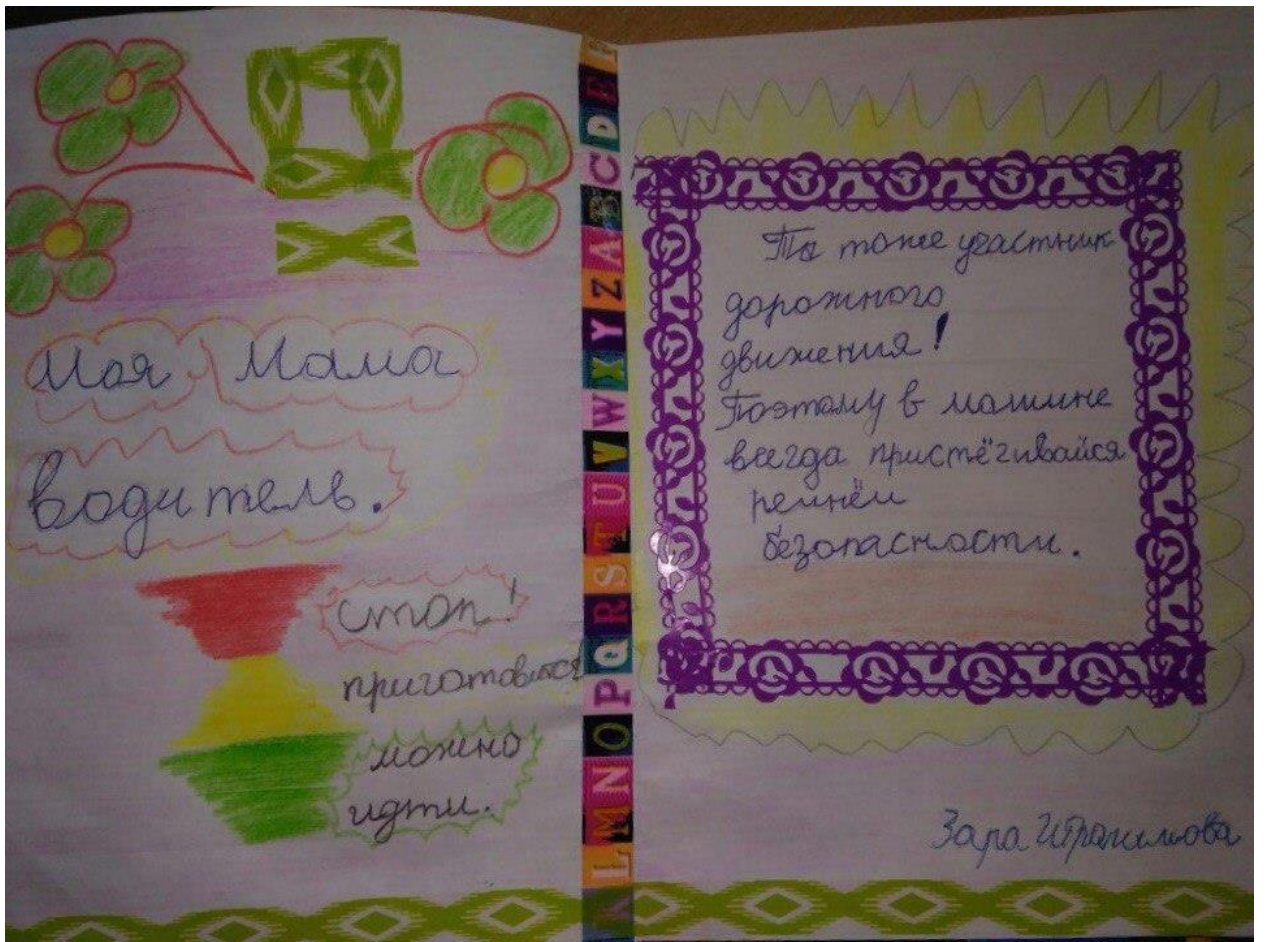 Моя Мама
водитель.
Стоп!
приготовится
можно
идти.
K L M N O P Q R S T U V W X Y Z A B C D E F
Ты тоже участник
дорожного
движения!
Поэтому в машине
всегда пристёгивайся
ремнём
безопасности.
Зара Ибрагимова